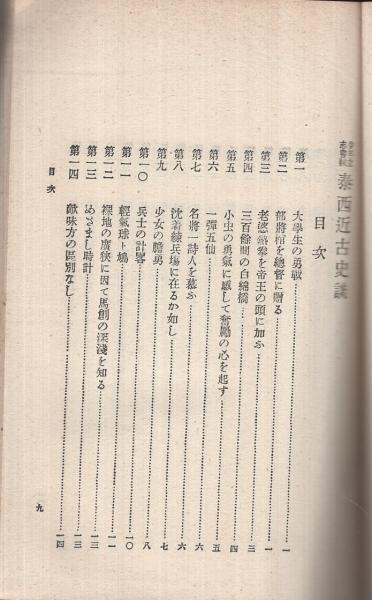 泰西近古史談
目次
第一 大學生の勇戰……一
第二 部將棺を總督に贈る……一
第三 老婆鐵拳を帝王の頭に加ふ……一
第四 三百餘間の白綿橋……三
第五 小虫の勇氣に感して奮勵の心を起す……四
第六 一彈五仙……五
第七 名將一詩人を慕ふ……六
第八 沈着練兵場に在るか如し……六
第九 少女の膽勇……七
第一〇 兵士の計畧……八
第一一 輕氣球ト鳩……一〇
第一二 裸地の廣狹に因て馬創の深淺を知る……一一
第一三 めさまし時計……一三
第一四 敵味方の區別なし……一四
目次
九